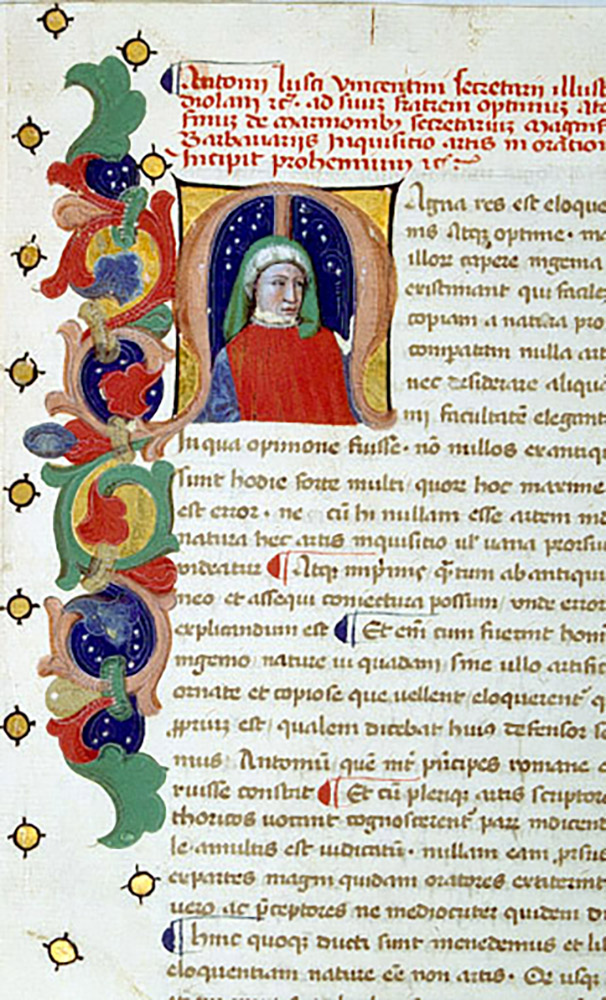 Antonij lusci Vincentini secretarij illust
diolani ⁊c̃. ad suuz fratrem optimuz At
simuz de marmonibꝰ secretariuz magnif
Barbauarijs Inquisitio artis in oration
Incipit prohemium ⁊c̃
MAgna res est eloque
ns Atqꝫ optime. m
illor capere ingenia
existimant qui facile
copiam a natura pro
comparatin nulla art
nec desiderare aliqu
mi facultatẽ elegant
In qua opinione fuisse. nõ nullos ex antiqu
sunt hodie forte multi quore hoc maxime
est error. ne cũ hi nullam esse artem
natura hec artis inquisitio ul' uana prorsu
uideatur Atqꝫ imprimis q̃tum ab antiqui
meo et assequi coniectura possum/ unde error
explicandum est Et eni cum fuerint hom
ingenio nature ui quadam/ sine ullo artific
ornate et copiose que uellent/ eloquerent q
ꝓpriuz est/ qualem dicebat huiꝰ defensor s
nius Antoniũ/ quẽ int' principes romane
ruisse constat Et cũ pleriqꝫ artis scriptor
thoricos uocant cognoscerent paꝝ indicent
le. amultis est iudicatũ. nullam eam prorsus
expartes magni quidam oratores extiterint
uero ac p̃ceptores ne mediocriter quidem di
hinc quoqꝫ ducti sunt menedemus et li
eloquentiam nature eẽ non artis. Or usqꝫ